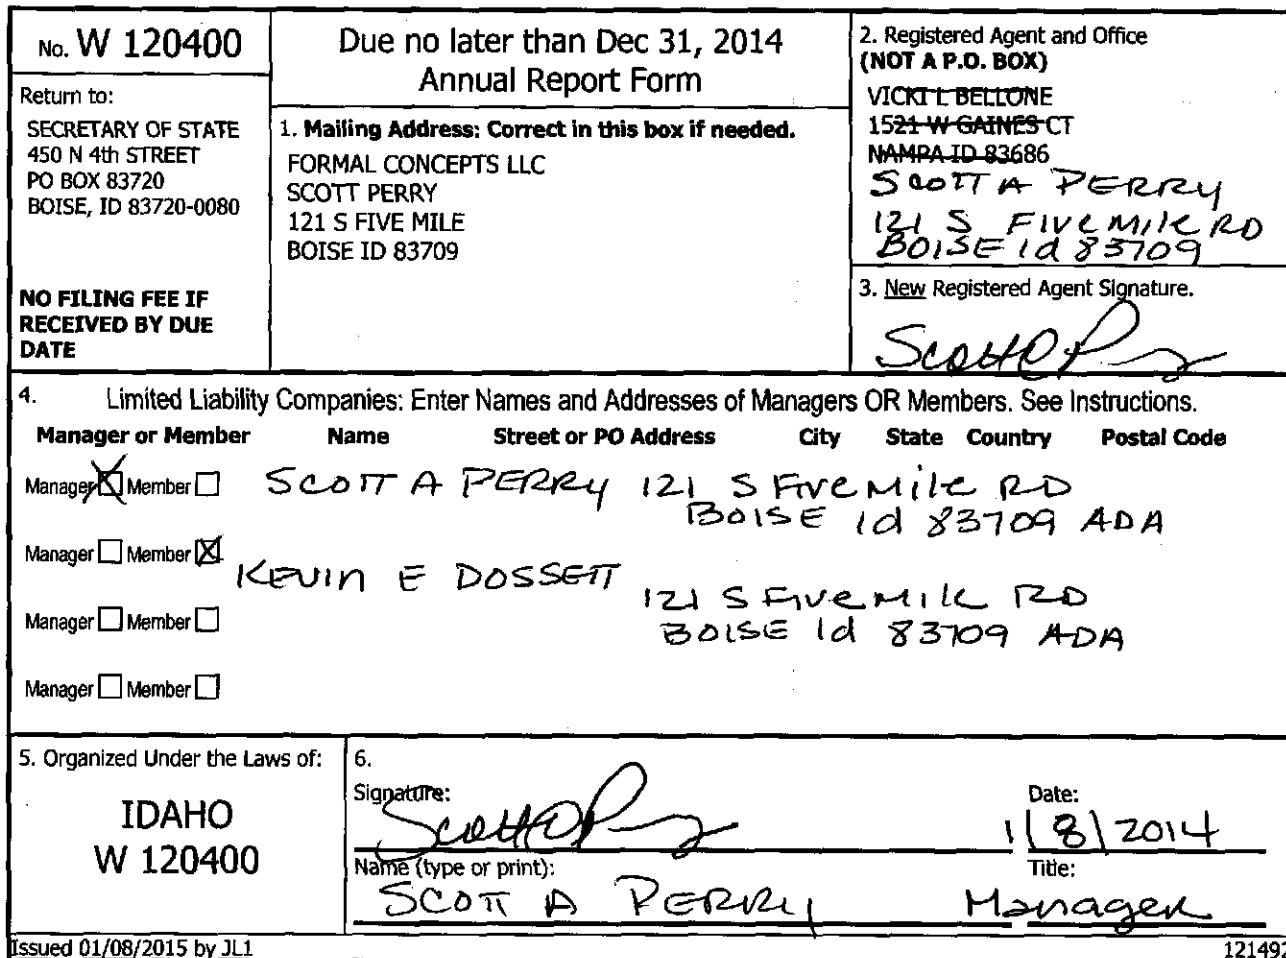 No. W 120400
Return to:
SECRETARY OF STATE
450 N 4th STREET
PO BOX 83720
BOISE, ID 83720-0080
NO FILING FEE IF
RECEIVED BY DUE
DATE
Due no later than Dec 31, 2014
Annual Report Form
1. Mailing Address: Correct in this box if needed.
FORMAL CONCEPTS LLC
SCOTT PERRY
121 S FIVE MILE
BOISE ID 83709
2. Registered Agent and Office
(NOT A P.O. BOX)
VICKI L BELLONE
1521 W GAINES CT
NAMPA ID 83686
SCOTT A PERRY
121 S FIVE MILE RD
BOISE id 83709
3. New Registered Agent Signature.
Scott A Perry
4. Limited Liability Companies: Enter Names and Addresses of Managers OR Members. See Instructions.
Manager or Member Name Street or PO Address City State Country Postal Code
Manager Member SCOTT A PERRY 121 S Five Mile RD
BOISE id 83709 ADA
Manager Member KEVIN E DOSSETT
121 S FIVE MILE RD
Manager Member BOISE Id 83709 ADA
Manager Member
5. Organized Under the Laws of:
IDAHO
W 120400
6.
Signature:
Scott A Perry
Date:
1/8/2014
Name (type or print):
SCOTT A PERRY
Title:
Manager
Issued 01/08/2015 by JL1
121492